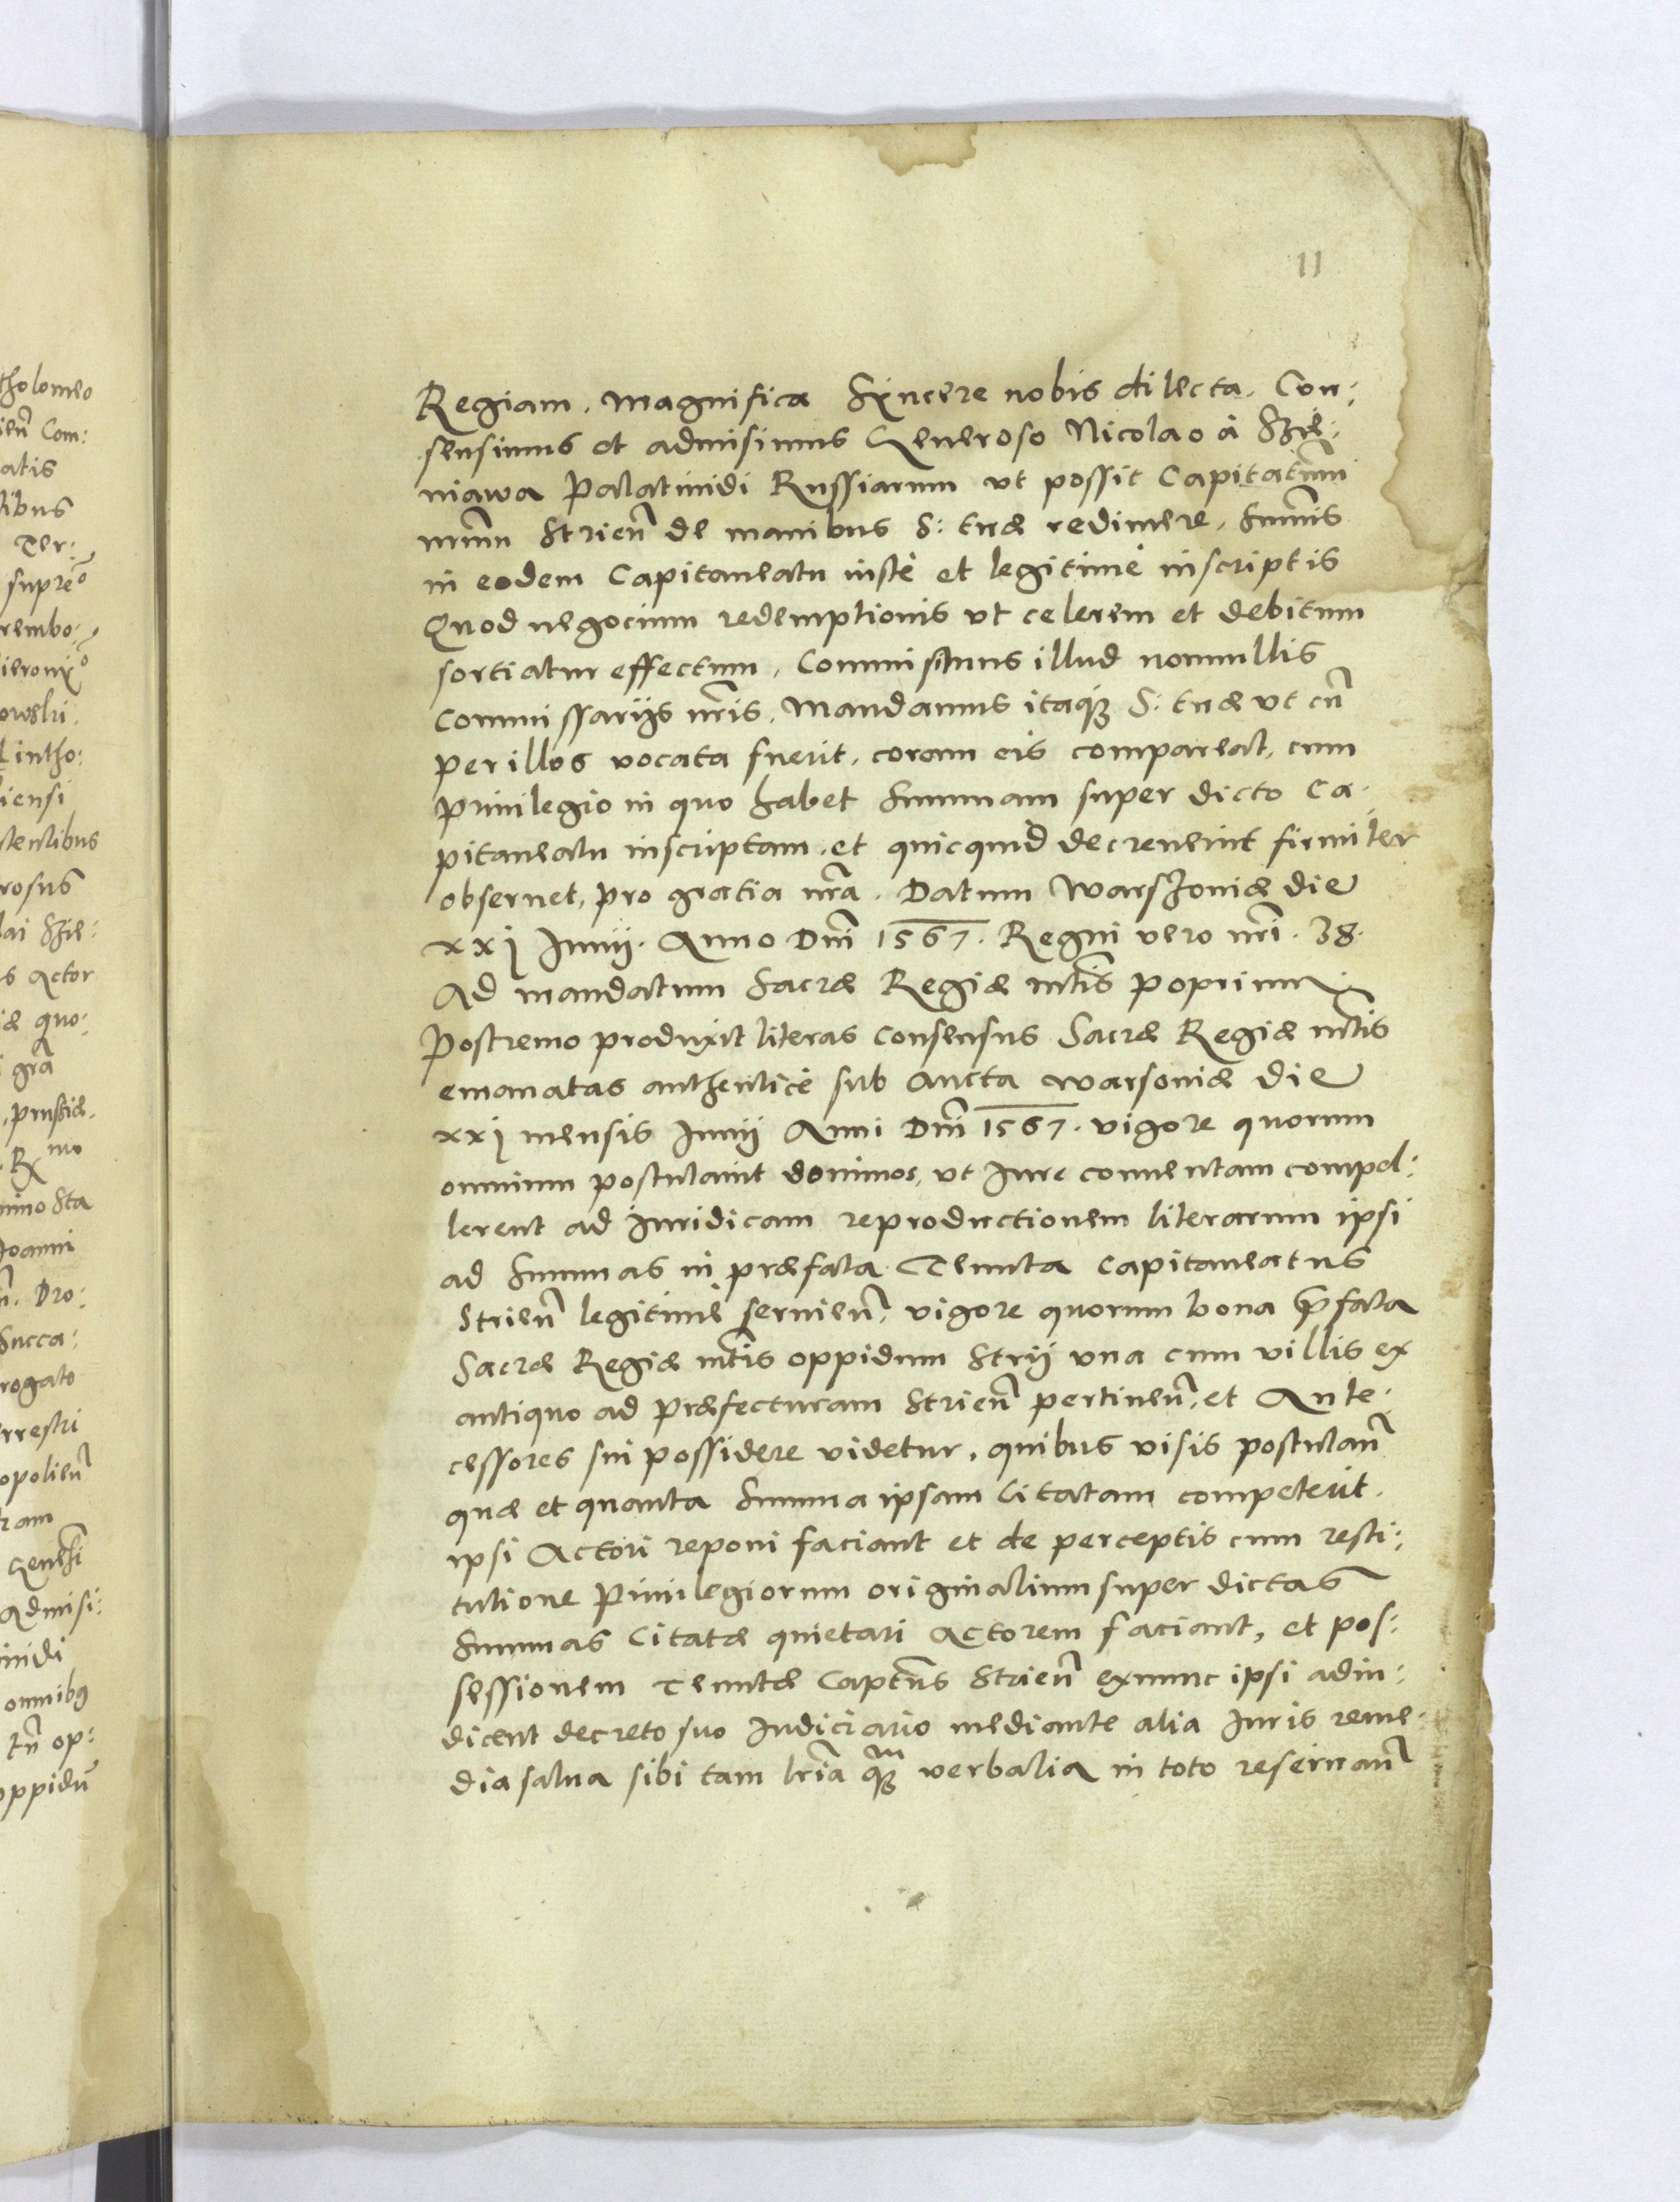 11
Regiam. Magnifica Syncere nobis dilecta. Con:
sensimus et admisimus Generoso Nicolao à Szie:
niawa Palatinidi Russiarum ut possit Capitatum
nrmm Strien̄ de manibus S: tuæ redimere, sum̄is
in eodem Capitaneatu iustè et legitimè inscriptis
Quod negocium redemptionis ut celerem et debitum
sortiatur effectum, Commisimus illud nonnullis
Commissarijs nr̄is, Mandamus itaq3 S: tuæ ut cū
per illos vocata fuerit, coram eis compareat, cum
privilegio in quo habet summam super dicto Ca-
pitaneatu inscriptam, et quicquid decreverint firmiter
observet, pro gratia nr̄a. Datum Warszoviæ die
xxj Junij. Anno Dn̄i 1567. Regni vero nr̄i. 38.
Ad mandatum Sacræ Regiæ mt̄is proprium.
Postremo produxit literas consensus Sacræ Regiæ mt̄is
emanatas authenticè sub Aucta Warsoviæ die
xxj mensis Junij Anni Dn̄i 1567. vigore quorum
omnium postulavit dominos, ut Jure conventam compel:
lerent ad Juridicam reproductionem literarum ipsi
ad summas in præfata Tenuta Capitaneatus
Strien̄ legitimè servien̄, vigore quorum bona p̄fata
Sacræ Regiæ mt̄is oppidum Strij una cum villis ex
antiquo ad præfecturam Strien̄ pertinen̄, et Ante:
cessores sui possidere videtur, quibus visis postulan̄
quæ et quanta summa ipsam Citatam competerit.
ipsi Actori reponi faciant et de perceptis cum resti:
tutione Privilegiorum originalium super dictas
summas Citatæ quietari Actorem faciant, et pos:
sessionem Tenutæ Captn̄s Strien̄ exnunc ipsi adiu:
dicent decreto suo Judiciario mediante alia Juris reme-
dia salva sibi tam lr̄ia q3m verbalia in toto reservan̄